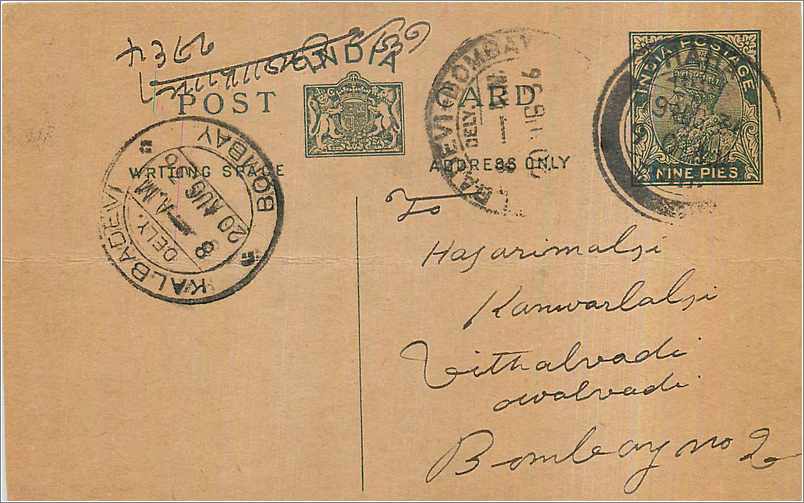 INDIA
POST CARD
WRITING SPACE
ADDRESS ONLY
INDIA POSTAGE
NINE PIES
KALBADEVI BOMBAY
DELY.
20 AUG
8 - A.M
KALBADEVI (BOMBAY)
DELY.
To
Hajarimalji
Kanwarlalji
Vithalvadi
owalvadi
Bombay no 2